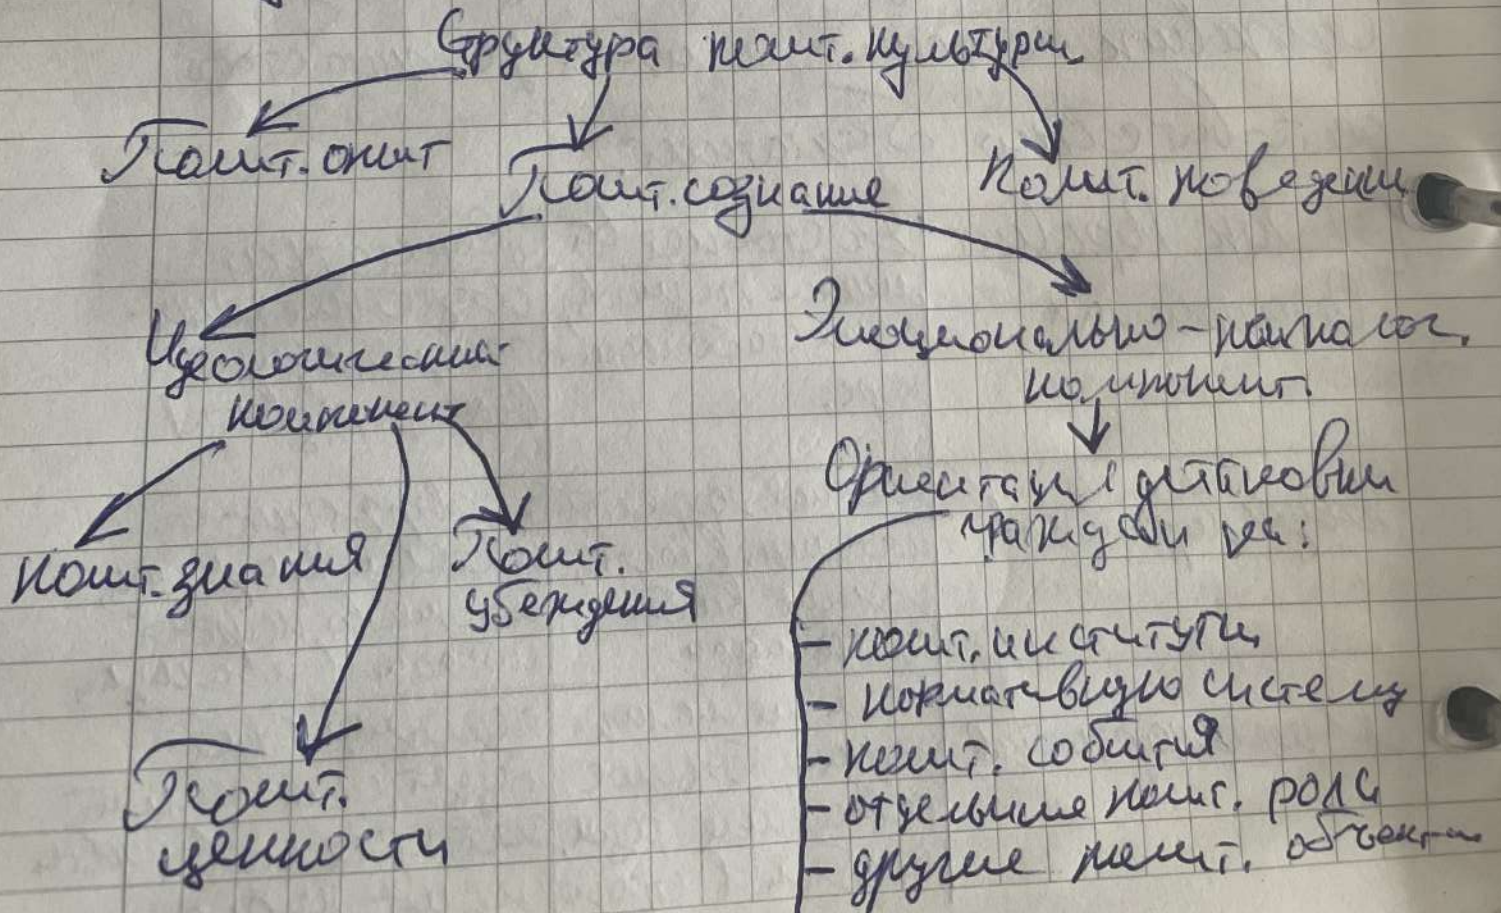 Структура полит. культуры
Полит. опыт
Полит. сознание
Полит. поведени
Идеологический
компонент
Эмоционально-психолог.
компонент.
Полит. знания
Полит.
убеждения
Полит.
ценности
Ориентации установки
граждан на:
- полит. институты
- нормативную систему
- полит. события
- отдельные полит. роли
- другие полит. объекты